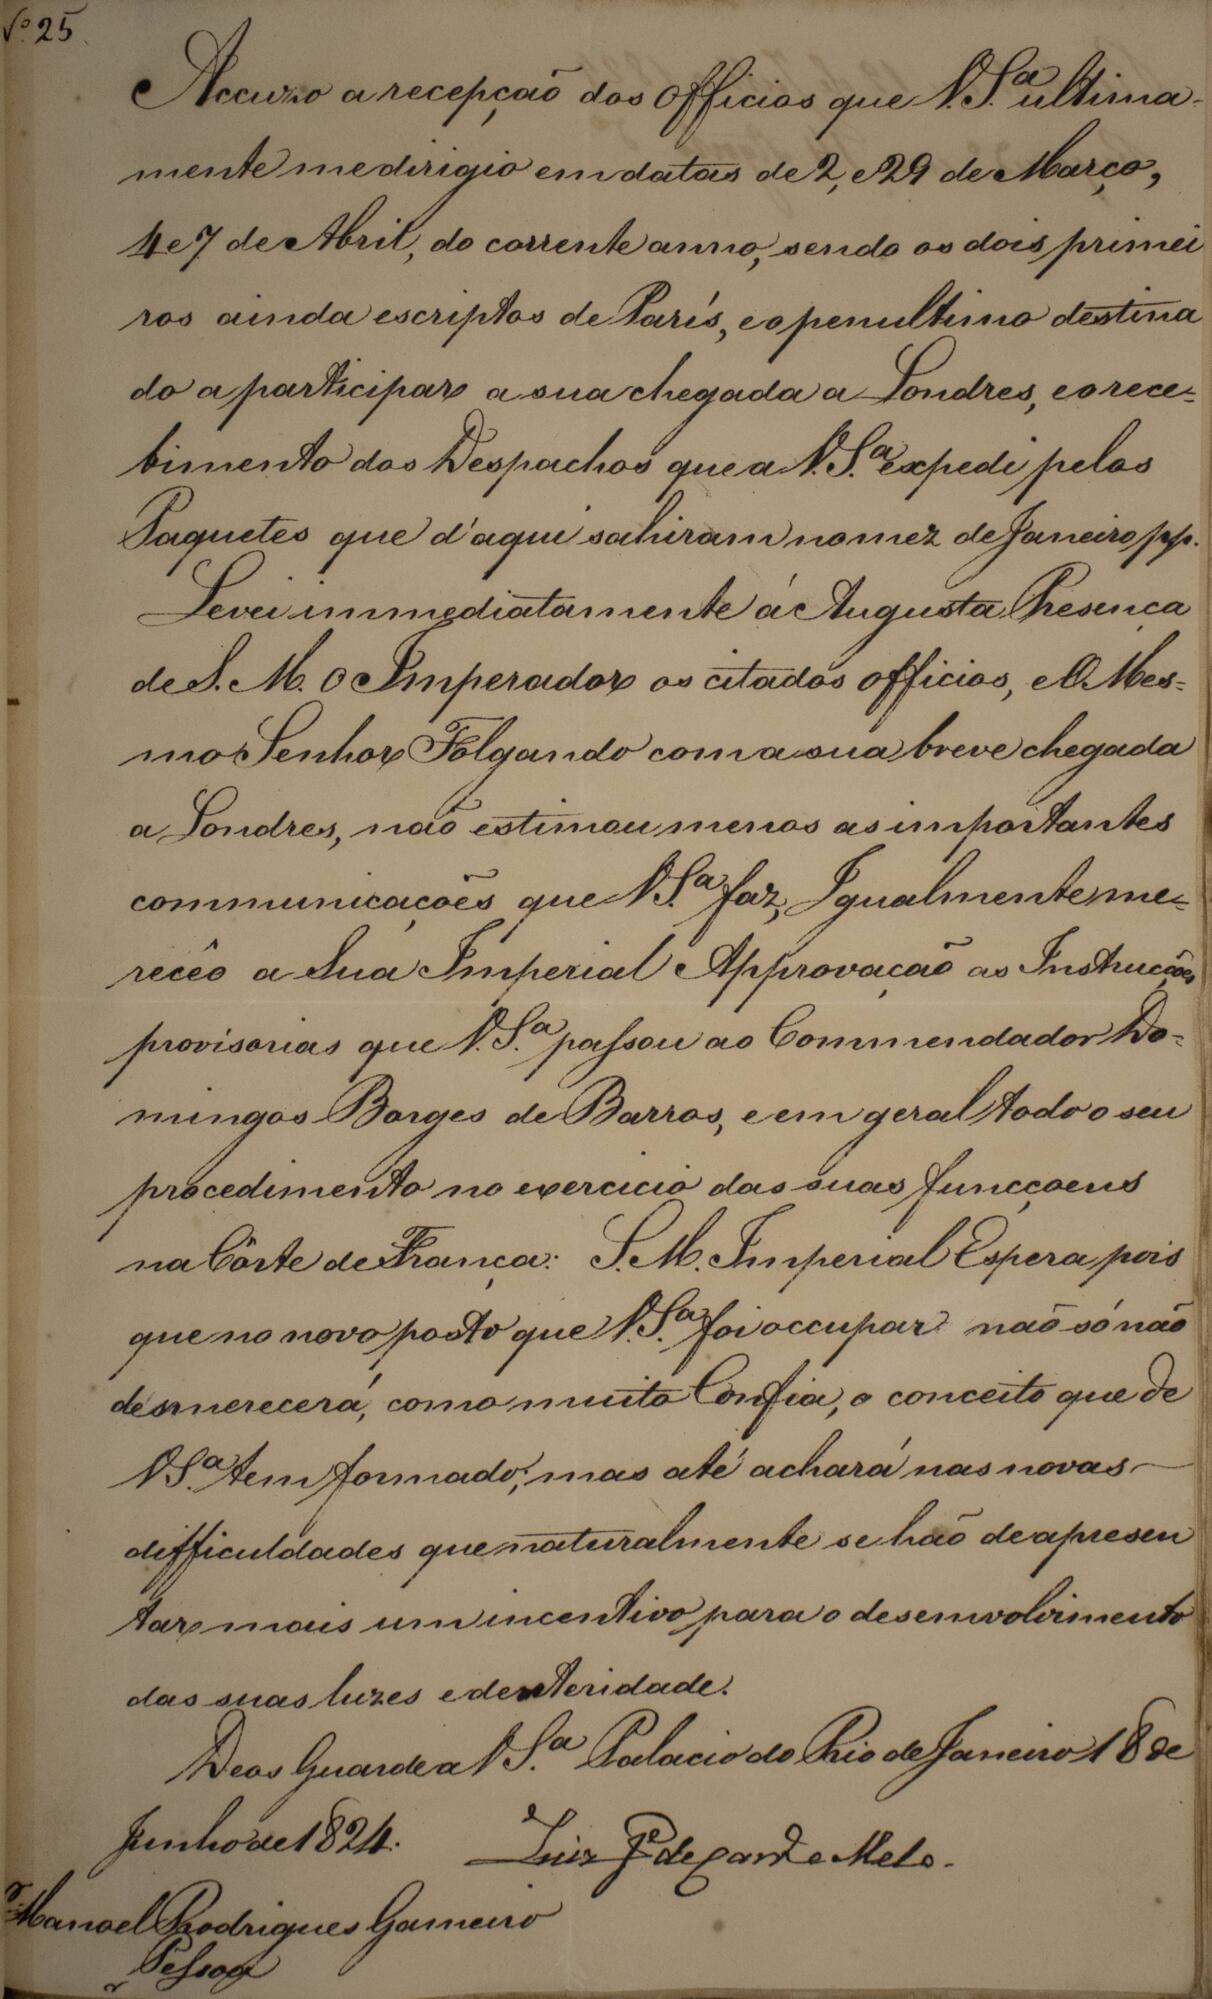 Nº 25
Accuso a recepção dos Officios que V. S.ª ultima-
mente me dirigio em datas de 2, e 29 de Março,
4 e 7 de Abril, do corrente anno, sendo os dois primei
ros ainda escriptos de París, e o penultimo destina
do a participar a sua chegada a Londres, e o rece-
bimento dos Despachos que a V. S.ª expedi pelos
Paquetes que d'aqui sahiram no mez de Janeiro pp.
Levei immediatamente á Augusta Presença
de S. M. O Imperador os citados officios, e O Mes-
mo Senhor Folgando com a sua breve chegada
a Londres, não estimou menos as importantes
communicações que V. S.ª faz, Igualmente me-
recêo a Sua Imperial Approvação as Instrucções
provisorias que V. S.ª passou ao Commendador Do-
mingos Borges de Barros, e em geral todo o seu
procedimento no exercicio das suas funcçoens
na Côrte de França: S. M. Imperial Espera pois
que no novo posto que V. S.ª foi occupar não só não
desmerecerá, como muito Confia, o conceito que de
V. S.ª tem formado; mas até achará nas novas
difficuldades que naturalmente se hão de apresen
tar mais um incentivo para o desenvolvimento
das suas luzes e dexteridade.
Deos Guarde a V. S.ª Palacio do Rio de Janeiro 18 de
Junho de 1824.
Luiz Jº de Carvº e Mello.
Manoel Rodrigues Gameiro
Pessoa